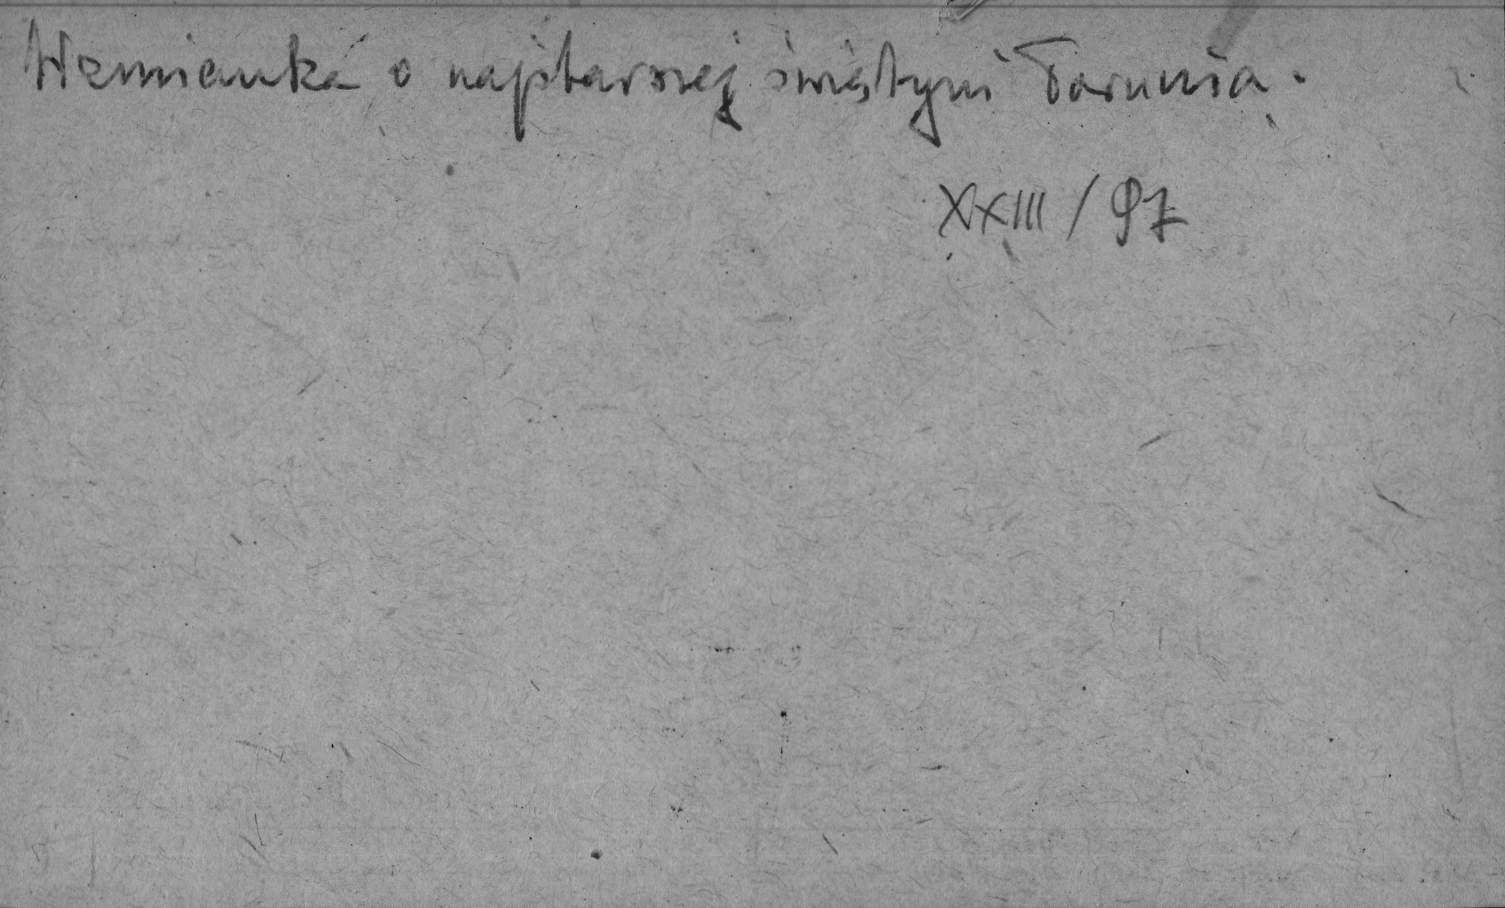 Wzmianka o najstarszej świątyni Torunia.
XXIII/97